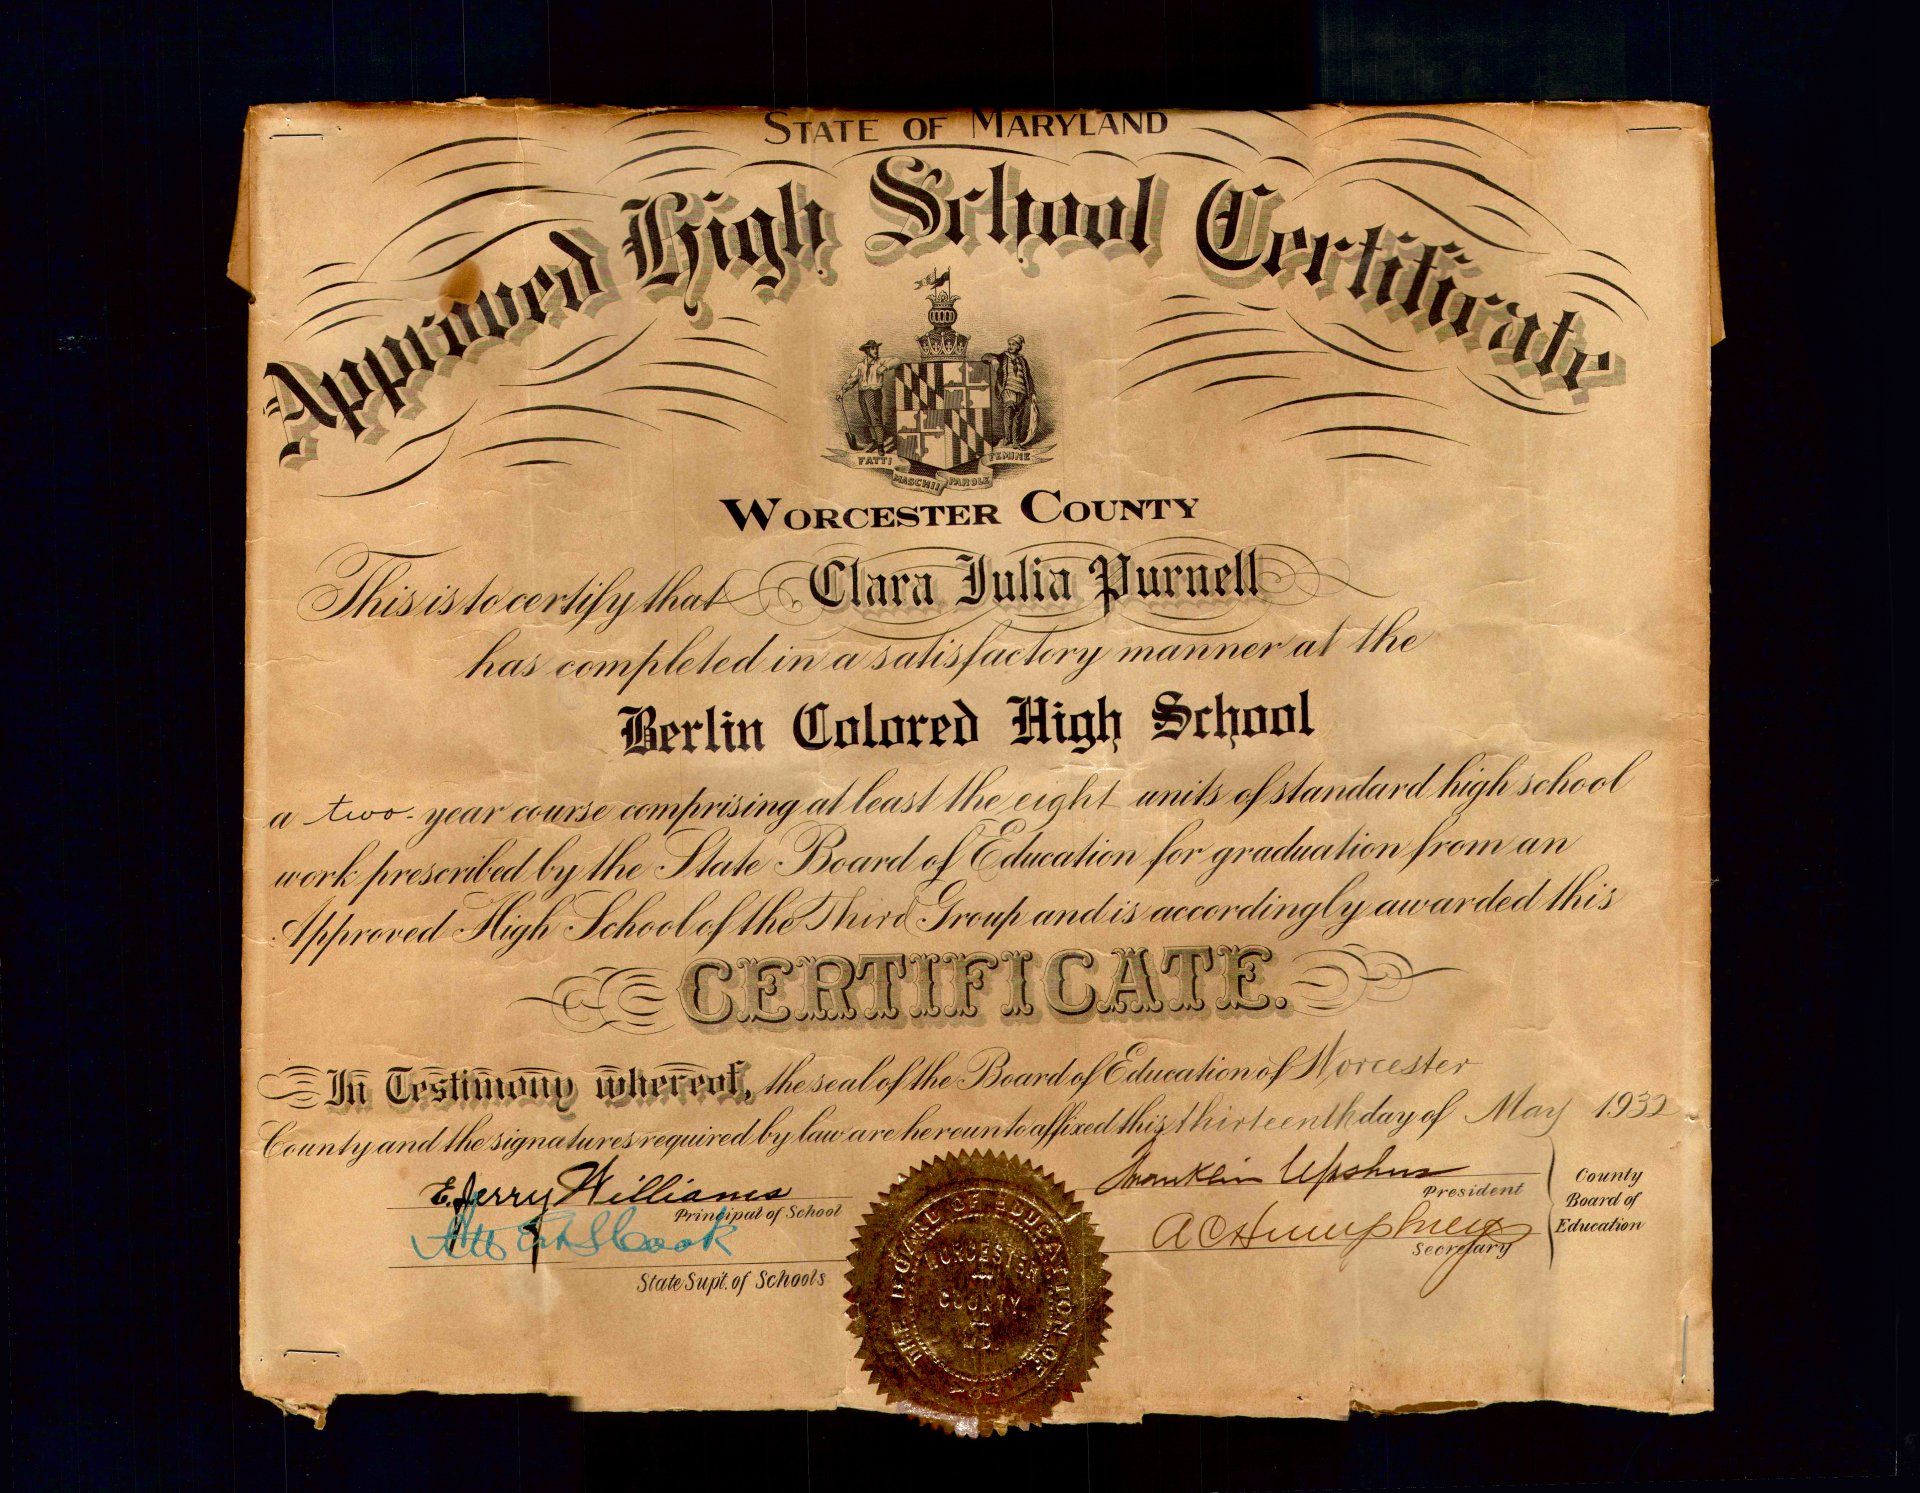 STATE OF MARYLAND
Approved High School Certificate
FATTI MASCHII PAROLE FEMINE
WORCESTER COUNTY
This is to certify that Clara Julia Purnell
has completed in a satisfactory manner at the
Berlin Colored High School
a two-year course comprising at least the eight units of standard high school
work prescribed by the State Board of Education for graduation from an
Approved High School of the Third Group and is accordingly awarded this
CERTIFICATE.
In Testimony whereof, the seal of the Board of Education of Worcester
County and the signatures required by law are hereunto affixed this thirteenth day of May 1932
E. Jerry Williams
Principal of School
Albert S. Cook
State Supt. of Schools
Franklin Upshur
President
A C Humphreys
Secretary
County
Board of
Education
THE BOARD OF EDUCATION OF
WORCESTER
COUNTY
MD.